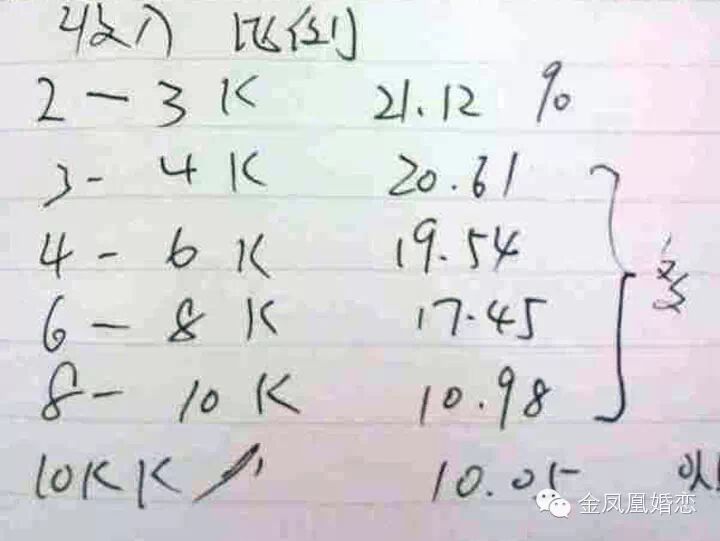 收入 比例
2－3K 21.12 %
3－4K 20.61
4－6K 19.54
6－8K 17.45
8－10K 10.98
10KK 10.05
金凤凰婚恋